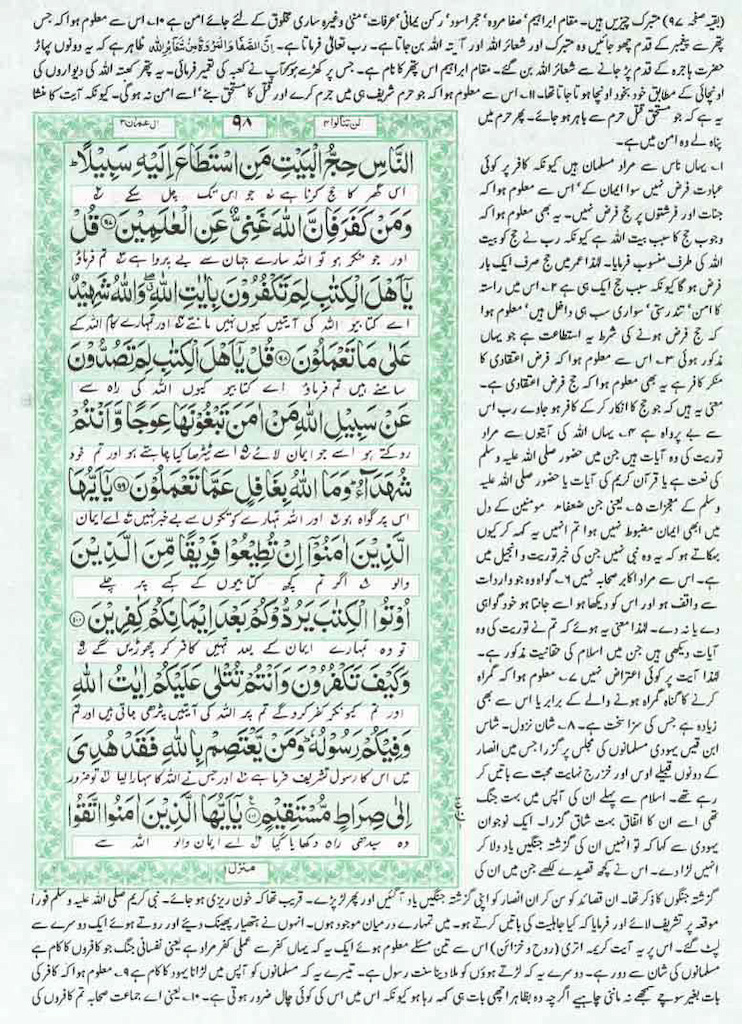 (بقیہ صفحہ ۹۷) متبرک چیزیں ہیں۔ مقام ابراہیم' صفا مروہ' حجر اسود' رکن یمانی' عرفات' منٰی وغیرہ ساری مخلوق کے لئے جائے امن ہے ۱۰۔ اس سے معلوم ہوا کہ جس
پتھر سے پیغمبر کے قدم چھو جائیں وہ متبرک اور شعائر اللہ اور آیتہ اللہ بن جاتا ہے۔ رب تعالٰی فرماتا ہے۔ اِنَّ الصَّفَا وَالْمَرْوَةَ مِنْ شَعَآئِرِ اللّٰهِ ظاہر ہے کہ یہ دونوں پہاڑ
حضرت ہاجرہ کے قدم پڑ جانے سے شعائر اللہ بن گئے۔ مقام ابراہیم اس پتھر کا نام ہے۔ جس پر کھڑے ہو کر آپ نے کعبہ کی تعمیر فرمائی۔ یہ پتھر کعبتہ اللہ کی دیواروں کی
اونچائی کے مطابق خود بخود اونچا ہوتا جاتا تھا۔ ۱۱۔ اس سے معلوم ہوا کہ جو حرم شریف ہی میں جرم کرے اور قتل کا مستحق بنے' اسے امن نہ ہوگی۔ کیونکہ آیت کا منشا
یہ ہے کہ جو مستحق قتل حرم سے باہر ہو جائے۔ پھر حرم میں
پناہ لے وہ امن میں ہے۔
۱۔ یہاں ناس سے مراد مسلمان ہیں کیونکہ کافر پر کوئی
عبادت فرض نہیں سوا ایمان کے' اس سے معلوم ہوا کہ
جنات اور فرشتوں پر حج فرض نہیں۔ یہ بھی معلوم ہوا کہ
وجوب حج کا سبب بیت اللہ ہے کیونکہ رب نے حج کو بیت
اللہ کی طرف منسوب فرمایا۔ لہٰذا عمر میں حج صرف ایک بار
فرض ہوگا کیونکہ سبب حج ایک ہی ہے ۲۔ اس میں راستہ
کا امن' تندرستی' سواری سب ہی داخل ہیں' معلوم ہوا
کہ حج فرض ہونے کی شرط یہ استطاعت ہے جو یہاں
مذکور ہوئی ۳۔ اس سے معلوم ہوا کہ فرض اعتقادی کا
منکر کافر ہے یہ بھی معلوم ہوا کہ حج فرض اعتقادی ہے۔
معنی یہ ہیں کہ جو حج کا انکار کر کے کافر ہو جاوے رب اس
سے بے پرواہ ہے ۴۔ یہاں اللہ کی آیتوں سے مراد
توریت کی وہ آیات ہیں جن میں حضور صلی اللہ علیہ وسلم
کی نعت ہے یا قرآن کریم کی آیات یا حضور صلی اللہ علیہ
وسلم کے معجزات ۵۔ یعنی جن ضعفاء مومنین کے دل
میں ابھی ایمان مضبوط نہیں ہوا تم انہیں یہ کہہ کر کیوں
بہکاتے ہو کہ یہ وہ نبی نہیں جن کی خبر توریت و انجیل میں
ہے۔ اس سے مراد اکابر صحابہ نہیں ۶۔ گواہ وہ جو واردات
سے واقف ہو اور اس کو دیکھا ہو اسے جانتا ہو خود گواہی
دے یا نہ دے۔ لہٰذا معنی یہ ہوئے کہ تم نے توریت کی وہ
آیات دیکھی ہیں جن میں اسلام کی حقانیت مذکور ہے۔
لہٰذا آیت پر کوئی اعتراض نہیں ۷۔ معلوم ہوا کہ گمراہ
کرنے کا گناہ گمراہ ہونے والے کے برابر یا اس سے بھی
زیادہ ہے جس کی سزا سخت ہے۔ ۸۔ شان نزول۔ شاس
ابن قیس یہودی مسلمانوں کی مجلس پر گزرا جس میں انصار
کے دونوں قبیلے اوس اور خزرج نہایت محبت سے باتیں کر
رہے تھے۔ اسلام سے پہلے ان کی آپس میں بہت جنگ
تھی اسے ان کا اتفاق بہت شاق گزرا۔ ایک نوجوان
یہودی سے کہا کہ تو انہیں ان کی گزشتہ جنگیں یاد دلا کر
انہیں لڑا دے۔ اس نے کچھ قصیدے لکھے جن میں ان کی
لن تنالوا ۴
۹۸
اٰل عمران ۳
النَّاسِ حِجُّ الْبَيْتِ مَنِ اسْتَطَاعَ اِلَيْهِ سَبِيْلًا ؕ
اس گھر کا حج کرنا ہے جو اس تک چل سکے
وَمَنْ كَفَرَ فَاِنَّ اللّٰهَ غَنِىٌّ عَنِ الْعٰلَمِيْنَ ۹۷ قُلْ
اور جو منکر ہو تو اللہ سارے جہان سے بے پرواہ ہے تم فرماؤ
يٰۤاَهْلَ الْكِتٰبِ لِمَ تَكْفُرُوْنَ بِاٰيٰتِ اللّٰهِ ۖ وَاللّٰهُ شَهِيْدٌ
اے کتابیو اللہ کی آیتیں کیوں نہیں مانتے اور تمہارے کام اللہ کے
عَلٰى مَا تَعْمَلُوْنَ ۹۸ قُلْ يٰۤاَهْلَ الْكِتٰبِ لِمَ تَصُدُّوْنَ
سامنے ہیں تم فرماؤ اے کتابیو کیوں اللہ کی راہ سے
عَنْ سَبِيْلِ اللّٰهِ مَنْ اٰمَنَ تَبْغُوْنَهَا عِوَجًا وَّاَنْتُمْ
روکتے ہو اسے جو ایمان لائے اسے ٹیڑھا کیا چاہتے ہو اور تم خود
شُهَدَآءُ ؕ وَمَا اللّٰهُ بِغَافِلٍ عَمَّا تَعْمَلُوْنَ ۹۹ يٰۤاَيُّهَا
اس پر گواہ ہو اور اللہ تمہارے کوتکوں سے بے خبر نہیں اے ایمان
الَّذِيْنَ اٰمَنُوْۤا اِنْ تُطِيْعُوْا فَرِيْقًا مِّنَ الَّذِيْنَ
والو اگر تم کچھ کتابیوں کے کہے پر چلے
اُوْتُوا الْكِتٰبَ يَرُدُّوْكُمْ بَعْدَ اِيْمَانِكُمْ كٰفِرِيْنَ ۱۰۰
تو وہ تمہارے ایمان کے بعد تمہیں کافر کر چھوڑیں گے
وَكَيْفَ تَكْفُرُوْنَ وَاَنْتُمْ تُتْلٰى عَلَيْكُمْ اٰيٰتُ اللّٰهِ
اور تم کیونکر کفر کرو گے تم پر اللہ کی آیتیں پڑھی جاتی ہیں اور تم
وَفِيْكُمْ رَسُوْلُهٗ ؕ وَمَنْ يَّعْتَصِمْ بِاللّٰهِ فَقَدْ هُدِىَ
میں اس کا رسول تشریف فرما ہے اور جس نے اللہ کا سہارا لیا تو ضرور
اِلٰى صِرَاطٍ مُّسْتَقِيْمٍ ۱۰۱ يٰۤاَيُّهَا الَّذِيْنَ اٰمَنُوا اتَّقُوا
وہ سیدھی راہ دکھایا گیا اے ایمان والو اللہ سے
منزل
گزشتہ جنگوں کا ذکر تھا۔ ان قصائد کو سن کر ان انصار کو اپنی گزشتہ جنگیں یاد آگئیں اور پھر لڑ پڑے۔ قریب تھا کہ خون ریزی ہو جائے۔ نبی کریم صلی اللہ علیہ وسلم فورًا
موقعہ پر تشریف لائے اور فرمایا کہ کیا جاہلیت کی باتیں کرتے ہو۔ میں تمہارے درمیان موجود ہوں۔ انہوں نے ہتھیار پھینک دیئے اور روتے ہوئے ایک دوسرے سے
لپٹ گئے۔ اس پر یہ آیت کریمہ اتری (روح و خزائن) اس سے تین مسئلے معلوم ہوئے ایک یہ کہ یہاں کفر سے عملی کفر مراد ہے یعنی نفسانی جنگ جو کافروں کا کام ہے
مسلمانوں کی شان سے دور ہے۔ دوسرے یہ کہ لڑتے ہوؤں کو ملا دینا سنت رسول ہے۔ تیسرے یہ کہ مسلمانوں کو آپس میں لڑانا یہود کا کام ہے ۹۔ معلوم ہوا کہ کافر کی
بات بغیر سوچے سمجھے نہ ماننی چاہیے اگرچہ وہ بظاہر اچھی بات ہی کہہ رہا ہو کیونکہ اس میں اس کی کوئی چال ضرور ہوتی ہے۔ ۱۰۔ یعنی اے جماعت صحابہ تم کافروں کی